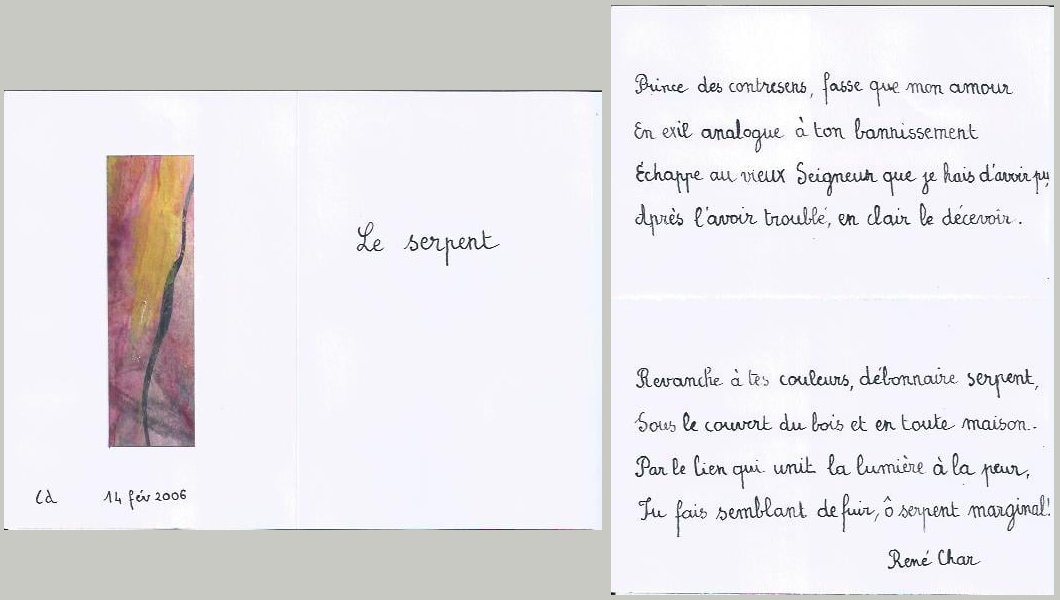 Le serpent
Cd 14 fév 2006
Prince des contresens, fasse que mon amour
En exil analogue à ton bannissement
Échappe au vieux Seigneur que je hais d'avoir pu,
Après l'avoir troublé, en clair le décevoir.
Revanche à tes couleurs, débonnaire serpent,
Sous le couvert du bois et en toute maison.
Par le lien qui unit la lumière à la peur,
Tu fais semblant de fuir, ô serpent marginal!
René Char